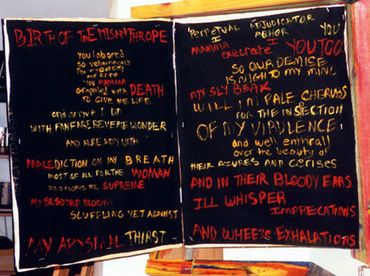 BIRTH OF THE MISANTHROPE
YOU LABORED
SO VEHEMENTLY
AND
YOU MAMMA
GRAPPLED WITH DEATH
TO GIVE ME LIFE
AND
WITH FANFARE REVERIE WONDER
AND ALREADY WITH
MALEDICTION ON MY BREATH
MOST OF ALL FOR THE WOMAN
SUPREME
MY BESOTTED BLOOM
SCUFFLING YET AGAINST
MY ABYSMAL THIRST
PERPETUAL ADJUDICATOR
I ABHOR YOU
MAMMA
I execrate YOU TOO
SO OUR DEMISE
IS NIGH TO MY MIND
MY SLY BEAK
WILL IMPALE CHERUBS
FOR THE INJECTION
OF MY VIRULENCE
and well enthrall
over the beauty of
THEIR AZURES AND CERISES
AND IN THEIR BLOODY EARS
ILL WHISPER
IMPRECATIONS
AND WHEEZE EXHALATIONS